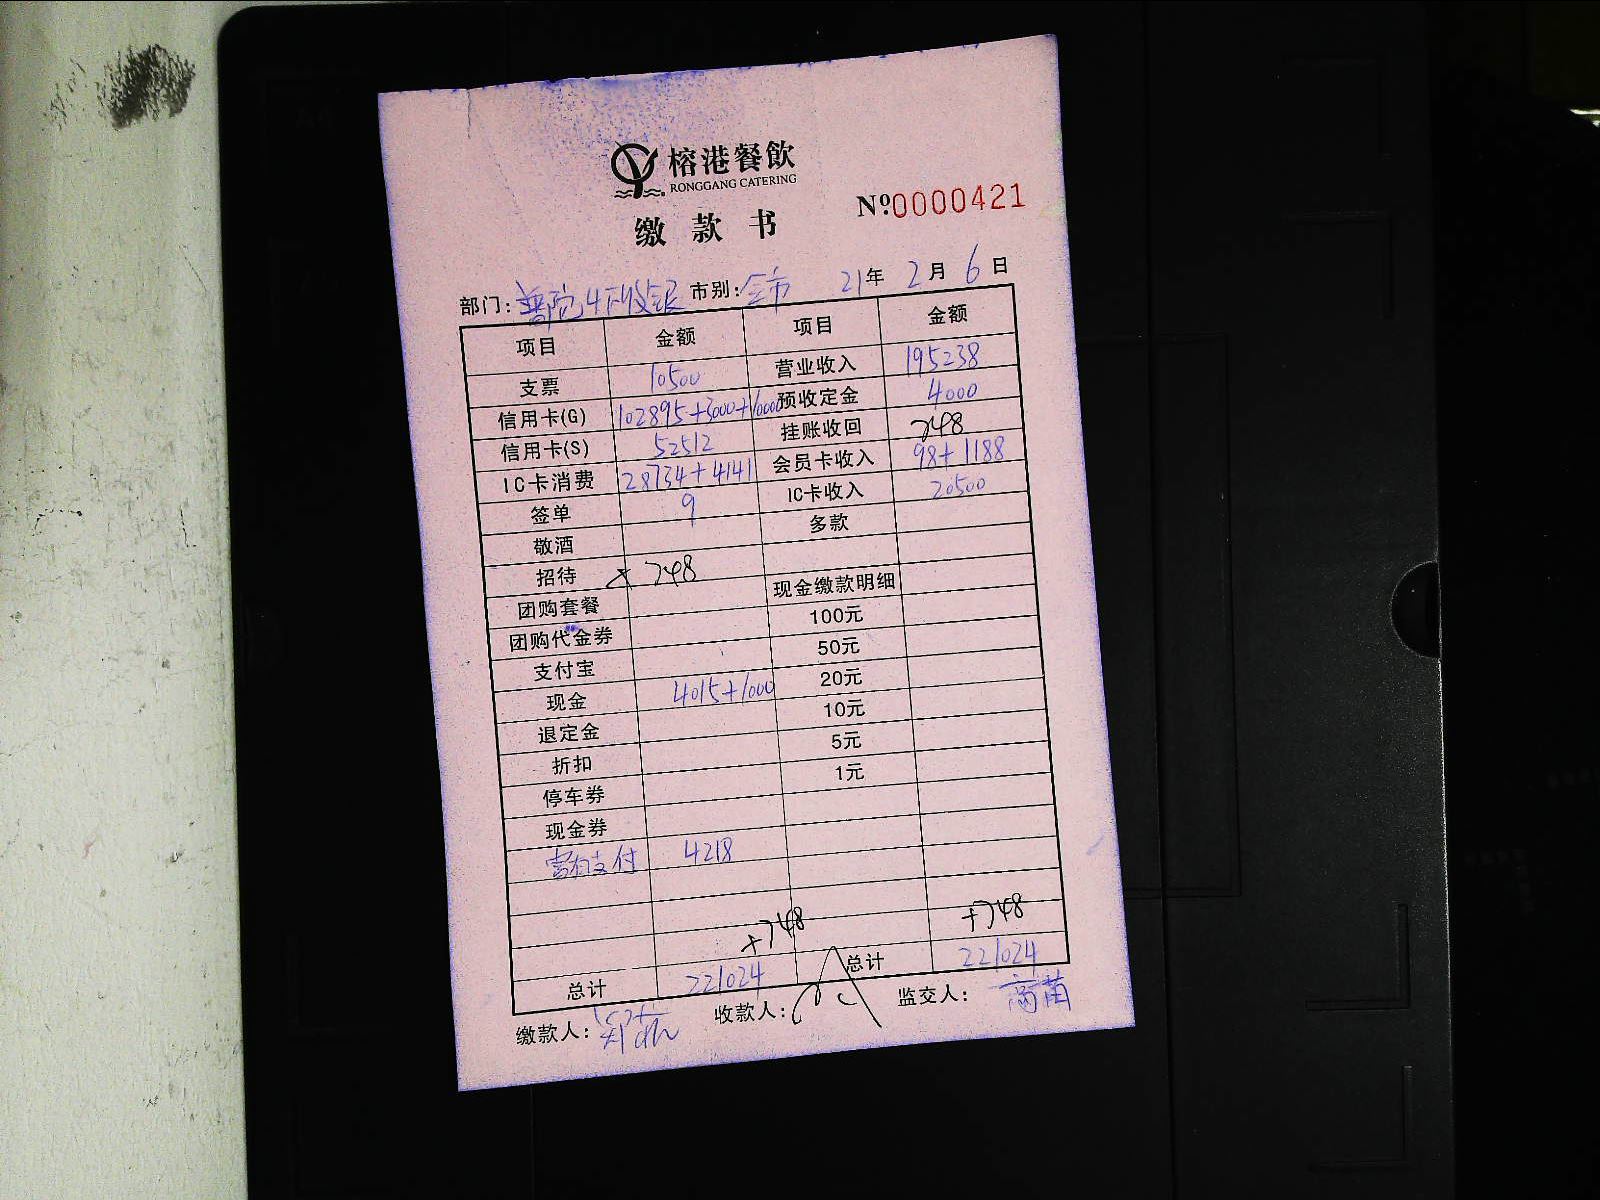 榕港餐飲
RONGGANG CATERING
缴款书
№0000421
部门: 普陀4F收银 市别: 全市 21年 2月 6日
项目 金额 项目 金额
支票 10500 营业收入 195238
信用卡(G) 102895+3000+10000 预收定金 4000
信用卡(S) 52512 挂账收回 748
IC卡消费 28734+4141 会员卡收入 98+1188
签单 9 IC卡收入 20500
敬酒 多款
招待 + 748
团购套餐 现金缴款明细
团购代金券 100元
支付宝 50元
现金 4015+1000 20元
退定金 10元
折扣 5元
停车券 1元
现金券
支付 4218
+748 +748
总计 221024 总计 221024
缴款人: 收款人: 监交人: 高苗